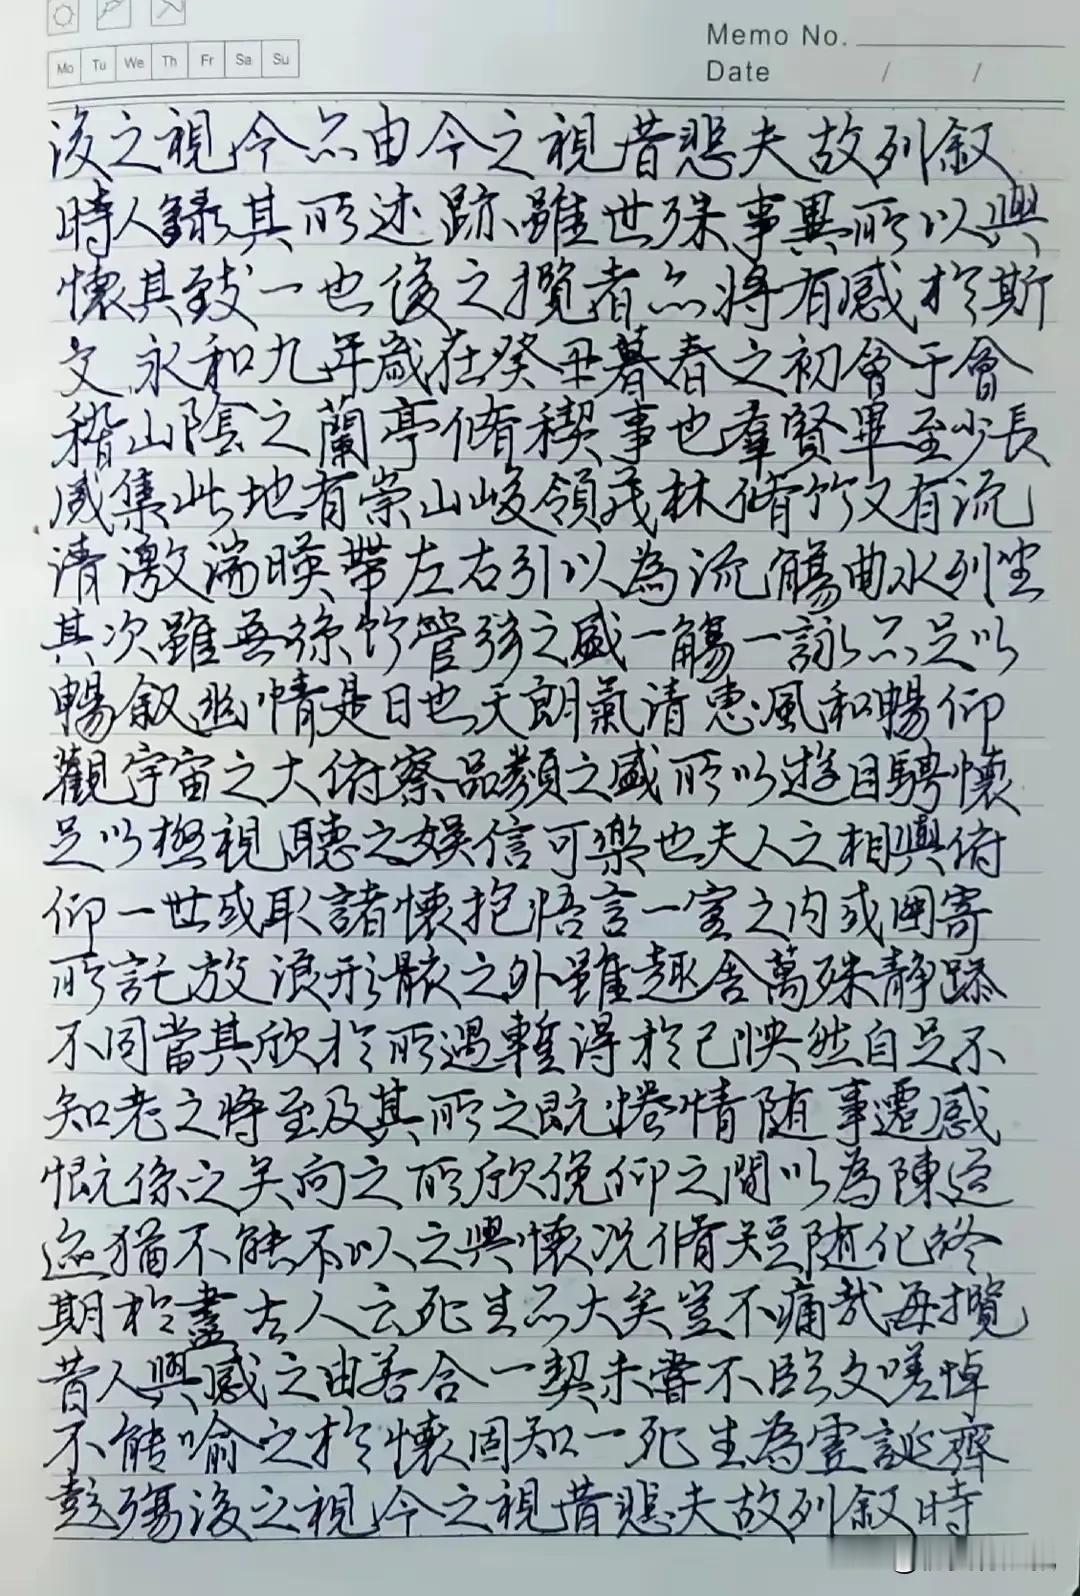 Memo No.
Date / /
Mo Tu We Th Fr Sa Su
後之視今亦由今之視昔悲夫故列叙
時人錄其所述跡雖世殊事異所以興
懷其致一也後之攬者亦將有感於斯
文永和九年歲在癸丑暮春之初會于會
稽山陰之蘭亭脩稧事也羣賢畢至少長
咸集此地有崇山峻領茂林脩竹又有流
清激湍暎帶左右引以為流觴曲水列坐
其次雖無絲竹管弦之盛一觴一詠亦足以
暢叙幽情是日也天朗氣清惠風和暢仰
觀宇宙之大俯察品類之盛所以遊目騁懷
足以極視聽之娛信可樂也夫人之相與俯
仰一世或取諸懷抱悟言一室之內或因寄
所託放浪形骸之外雖趣舍萬殊静躁
不同當其欣於所遇暫得於己怏然自足不
知老之將至及其所之既惓情随事遷感
慨係之矣向之所欣俛仰之間以為陳迹
迹猶不能不以之興懷况脩短随化終
期於盡古人云死生亦大矣豈不痛哉每攬
昔人興感之由若合一契未甞不臨文嗟悼
不能喻之於懷固知一死生為虛誕齊
彭殤後之視今之視昔悲夫故列叙時